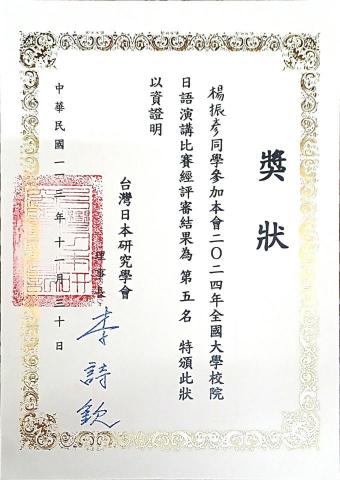 獎狀
楊振彥同學參加本會二〇二四年全國大學校院
日語演講比賽經評審結果為 第五名 特頒此狀
以資證明
台灣日本研究學會
理事長 李詩欽
中華民國一一三年十一月三十日